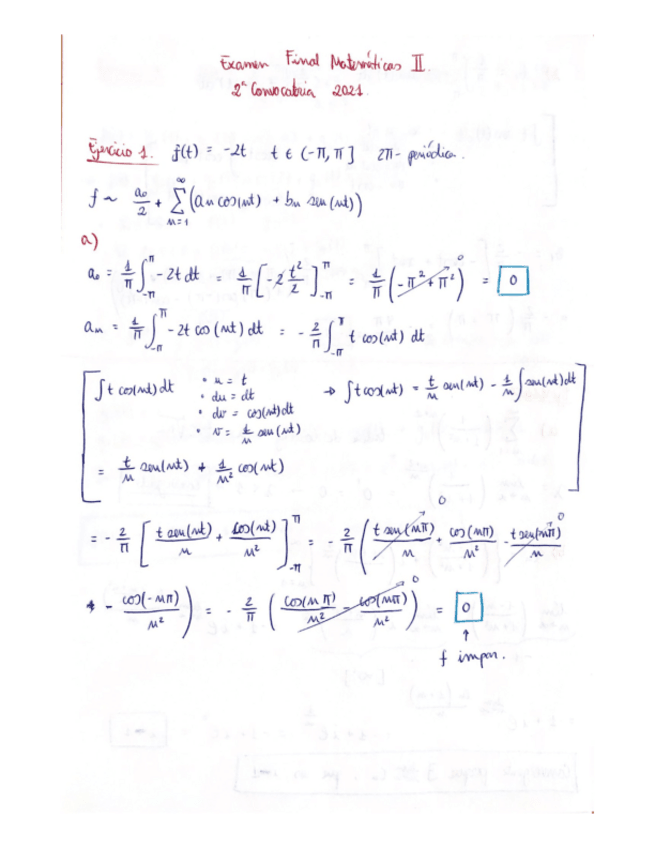 Examen Final Matemáticas II.
2ª Convocatoria 2021.
Ejercicio 1. f(t) = -2t t ∈ (-π, π] 2π-periódica.
f ~ a₀/2 + Σ_{n=1}^{∞} (aₙ cos(nt) + bₙ sen(nt))
a)
a₀ = 1/π ∫_{-π}^{π} -2t dt = 1/π [-2 t²/2]_{-π}^{π} = 1/π (-π² + π²)⁰ = 0
aₙ = 1/π ∫_{-π}^{π} -2t cos(nt) dt = -2/π ∫_{-π}^{π} t cos(nt) dt
∫ t cos(nt) dt • u = t → ∫ t cos(nt) = t/n sen(nt) - 1/n ∫ sen(nt) dt
• du = dt
• dv = cos(nt) dt
• v = 1/n sen(nt)
= t/n sen(nt) + 1/n² cos(nt)
= -2/π [t sen(nt)/n + cos(nt)/n²]_{-π}^{π} = -2/π (t sen(nπ)/n⁰ + cos(nπ)/n² - t sen(nπ)/n⁰
- cos(-nπ)/n²) = -2/π (cos(nπ)/n² - cos(nπ)/n²)⁰ = 0
↑
f impar.